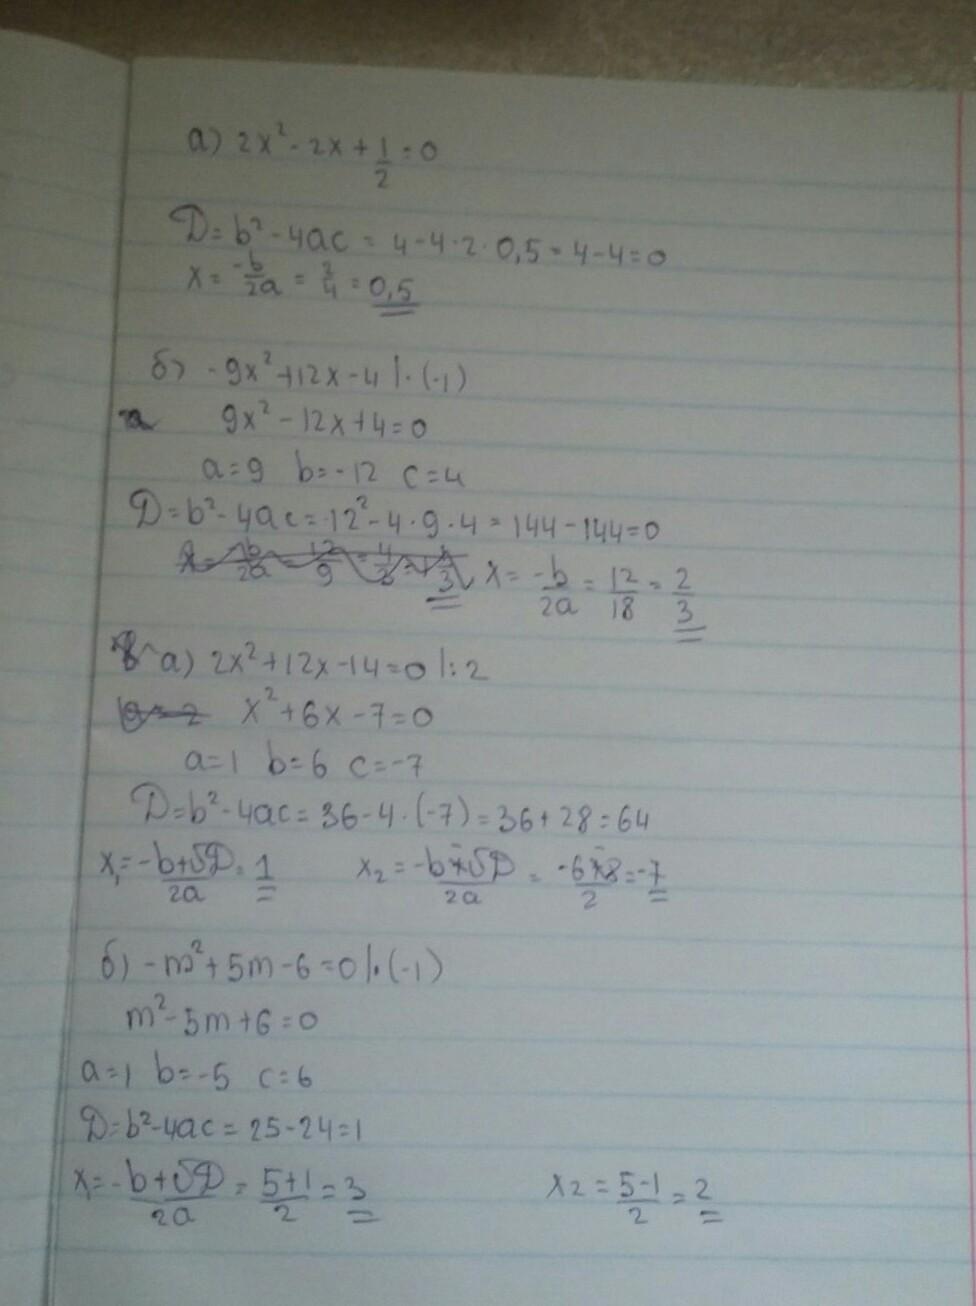 а) 2x² - 2x + 1/2 = 0
D = b² - 4ac = 4 - 4·2·0,5 = 4 - 4 = 0
x = -b/2a = 2/4 = 0,5
б) -9x² + 12x - 4 |·(-1)
9x² - 12x + 4 = 0
a = 9 b = -12 c = 4
D = b² - 4ac = -12² - 4·9·4 = 144 - 144 = 0
x = -b/2a = 12/18 = 2/3
а) 2x² + 12x - 14 = 0 |:2
x² + 6x - 7 = 0
a = 1 b = 6 c = -7
D = b² - 4ac = 36 - 4·(-7) = 36 + 28 = 64
x₁ = -b+√D/2a = 1 x₂ = -b-√D/2a = -6-8/2 = -7
б) -m² + 5m - 6 = 0 |·(-1)
m² - 5m + 6 = 0
a = 1 b = -5 c = 6
D = b² - 4ac = 25 - 24 = 1
x₁ = -b+√D/2a = 5+1/2 = 3 x2 = 5-1/2 = 2